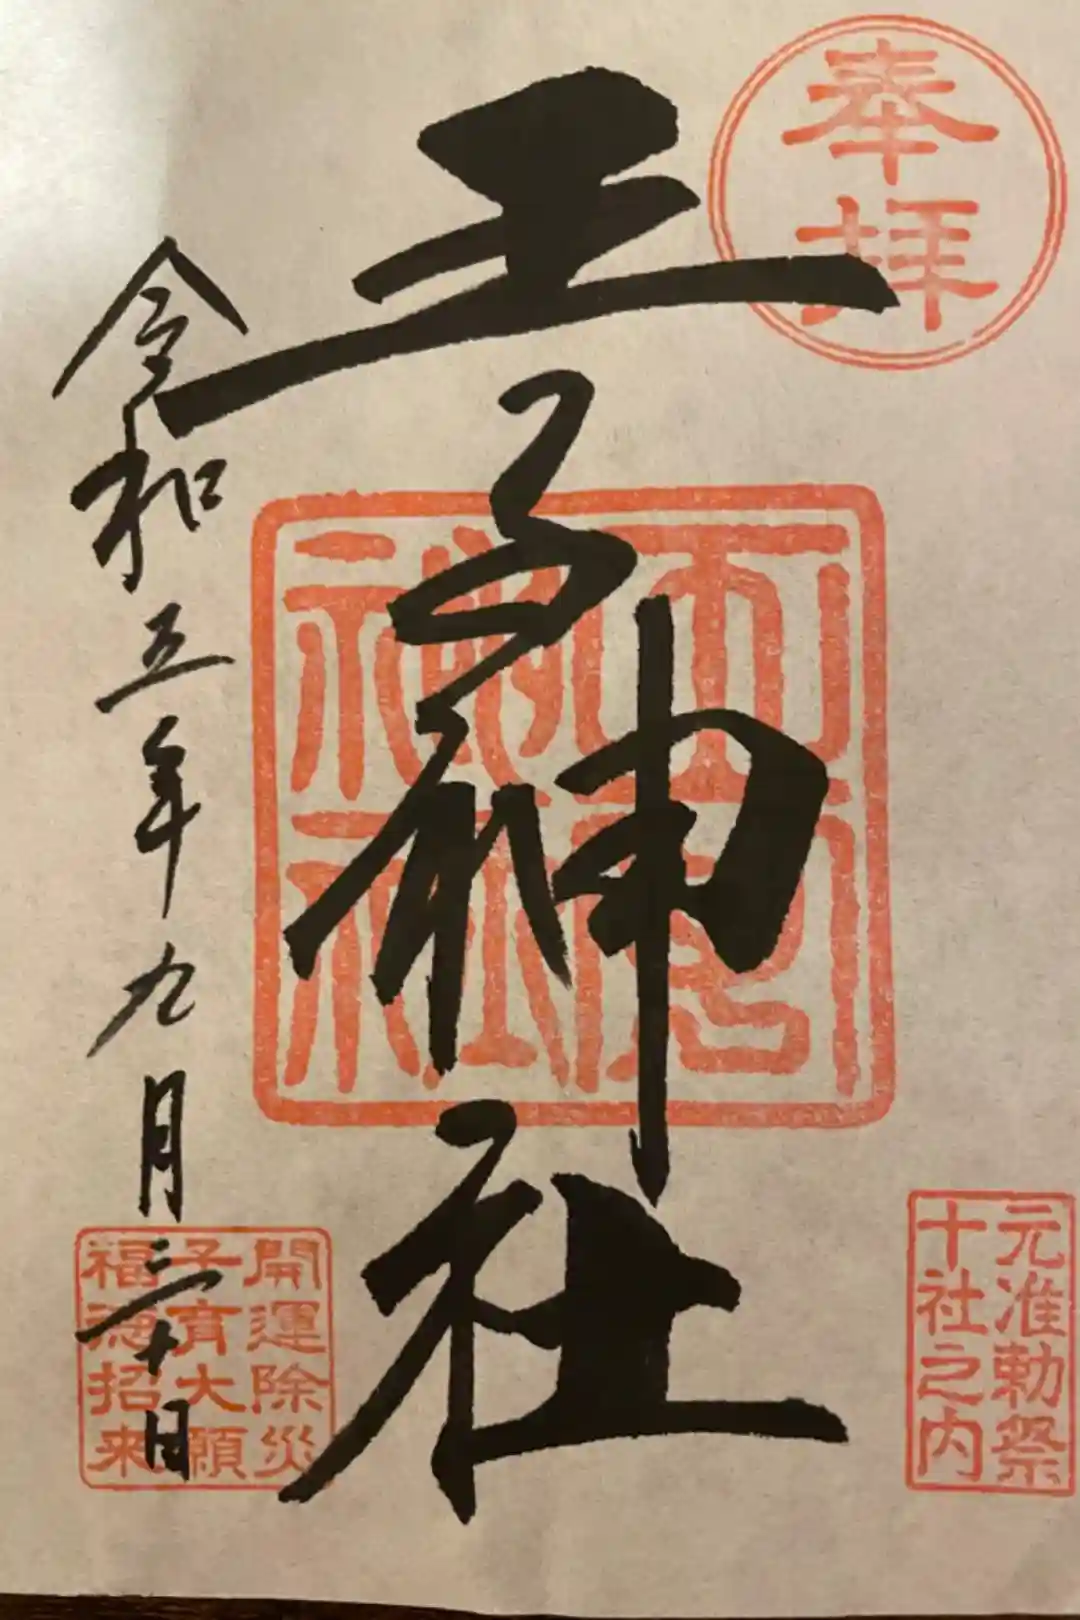 奉拝
王子神社
王子神社
元准勅祭
十社之内
令和五年九月三十日
開運除災
子育大願
福徳招来